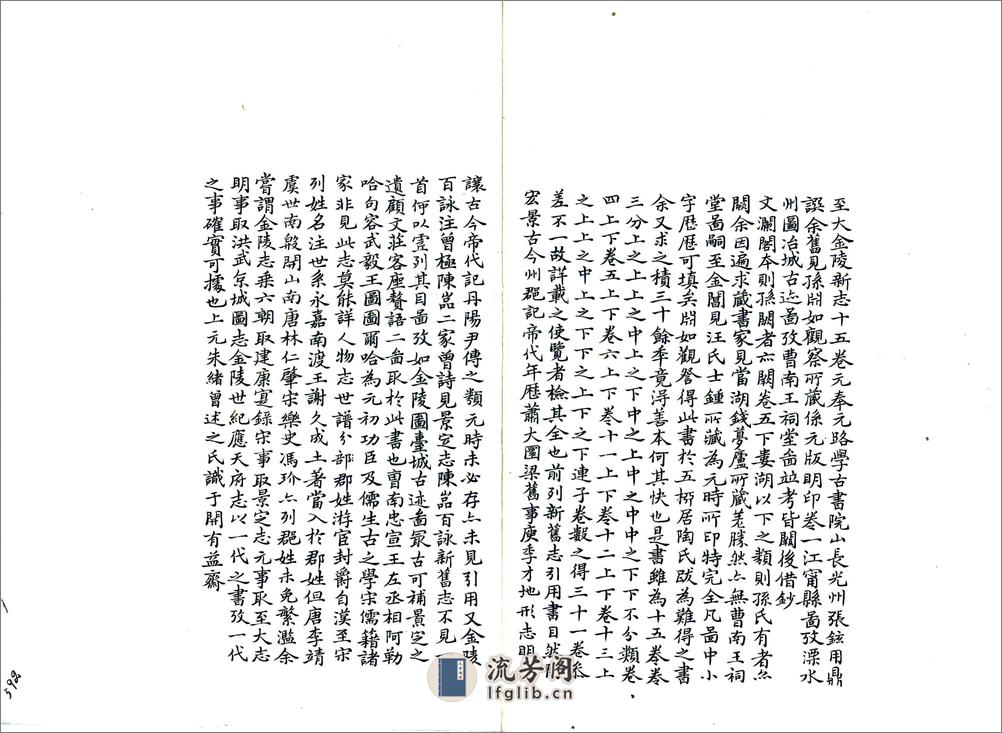 至大金陵新志十五卷元奉元路學古書院山長光州張鉉用鼎
譔余舊見孫淵如觀察所藏係元版明印卷一江甯縣啚攷溧水
州圖冶城古迹啚攷曹南王祠堂啚竝考皆闕後借鈔
文瀾閣本則孫闕者亦闕卷五下婁湖以下之類則孫氏有者亦
闕余因遍求藏書家見當湖錢夢廬所藏差勝然亦無曹南王祠
堂啚嗣至金閶見汪氏士鍾所藏為元時所印特完全凡啚中小
字歷歷可填矣淵如觀詧得此書於五栁居陶氏跋為難得之書
余又求之積三十餘季竟淂善本何其快也是書雖為十五卷卷
三分上之上上之中上之下中之上中之中中之下下不分類卷
四上下卷五上下卷六上下卷十一上下卷十二上下卷十三上
之上上之中上之下下之上下之下連子卷數之得三十一卷叅
差不一故詳載之使覽者檢其全也前列新舊志引用書目然陶
宏景古今州郡記帝代年歷蕭大圜梁舊事庾季才地形志明
讓古今帝代記丹陽尹傳之類元時未必存亦未見引用又金陵
百詠注曾極陳嵓二家曾詩見景定志陳嵓百詠新舊志不見一
首何以虛列其目啚攷如金陵圖臺城古迹啚最古可補景定之
遺顧文莊客座贅語二啚取於此書也曹南忠宣王左丞相阿勒
哈向容武毅王圖圖爾哈為元初功臣及儒生古之學宋儒籍諸
家非見此志莫能詳人物志世譜分部郡姓游宦封爵自漢至宋
列姓名注世系永嘉南渡王謝久成土著當入於郡姓但唐李靖
虞世南殷開山南唐林仁肇宋樂史馮玠亦列郡姓未免繁濫余
嘗謂金陵志乘六朝取建康實錄宋事取景定志元事取至大志
明事取洪武京城圖志金陵世紀應天府志以一代之書攷一代
之事確實可據也上元朱緒曾述之氏識于開有益齋
592
流芳阁
lfglib.cn